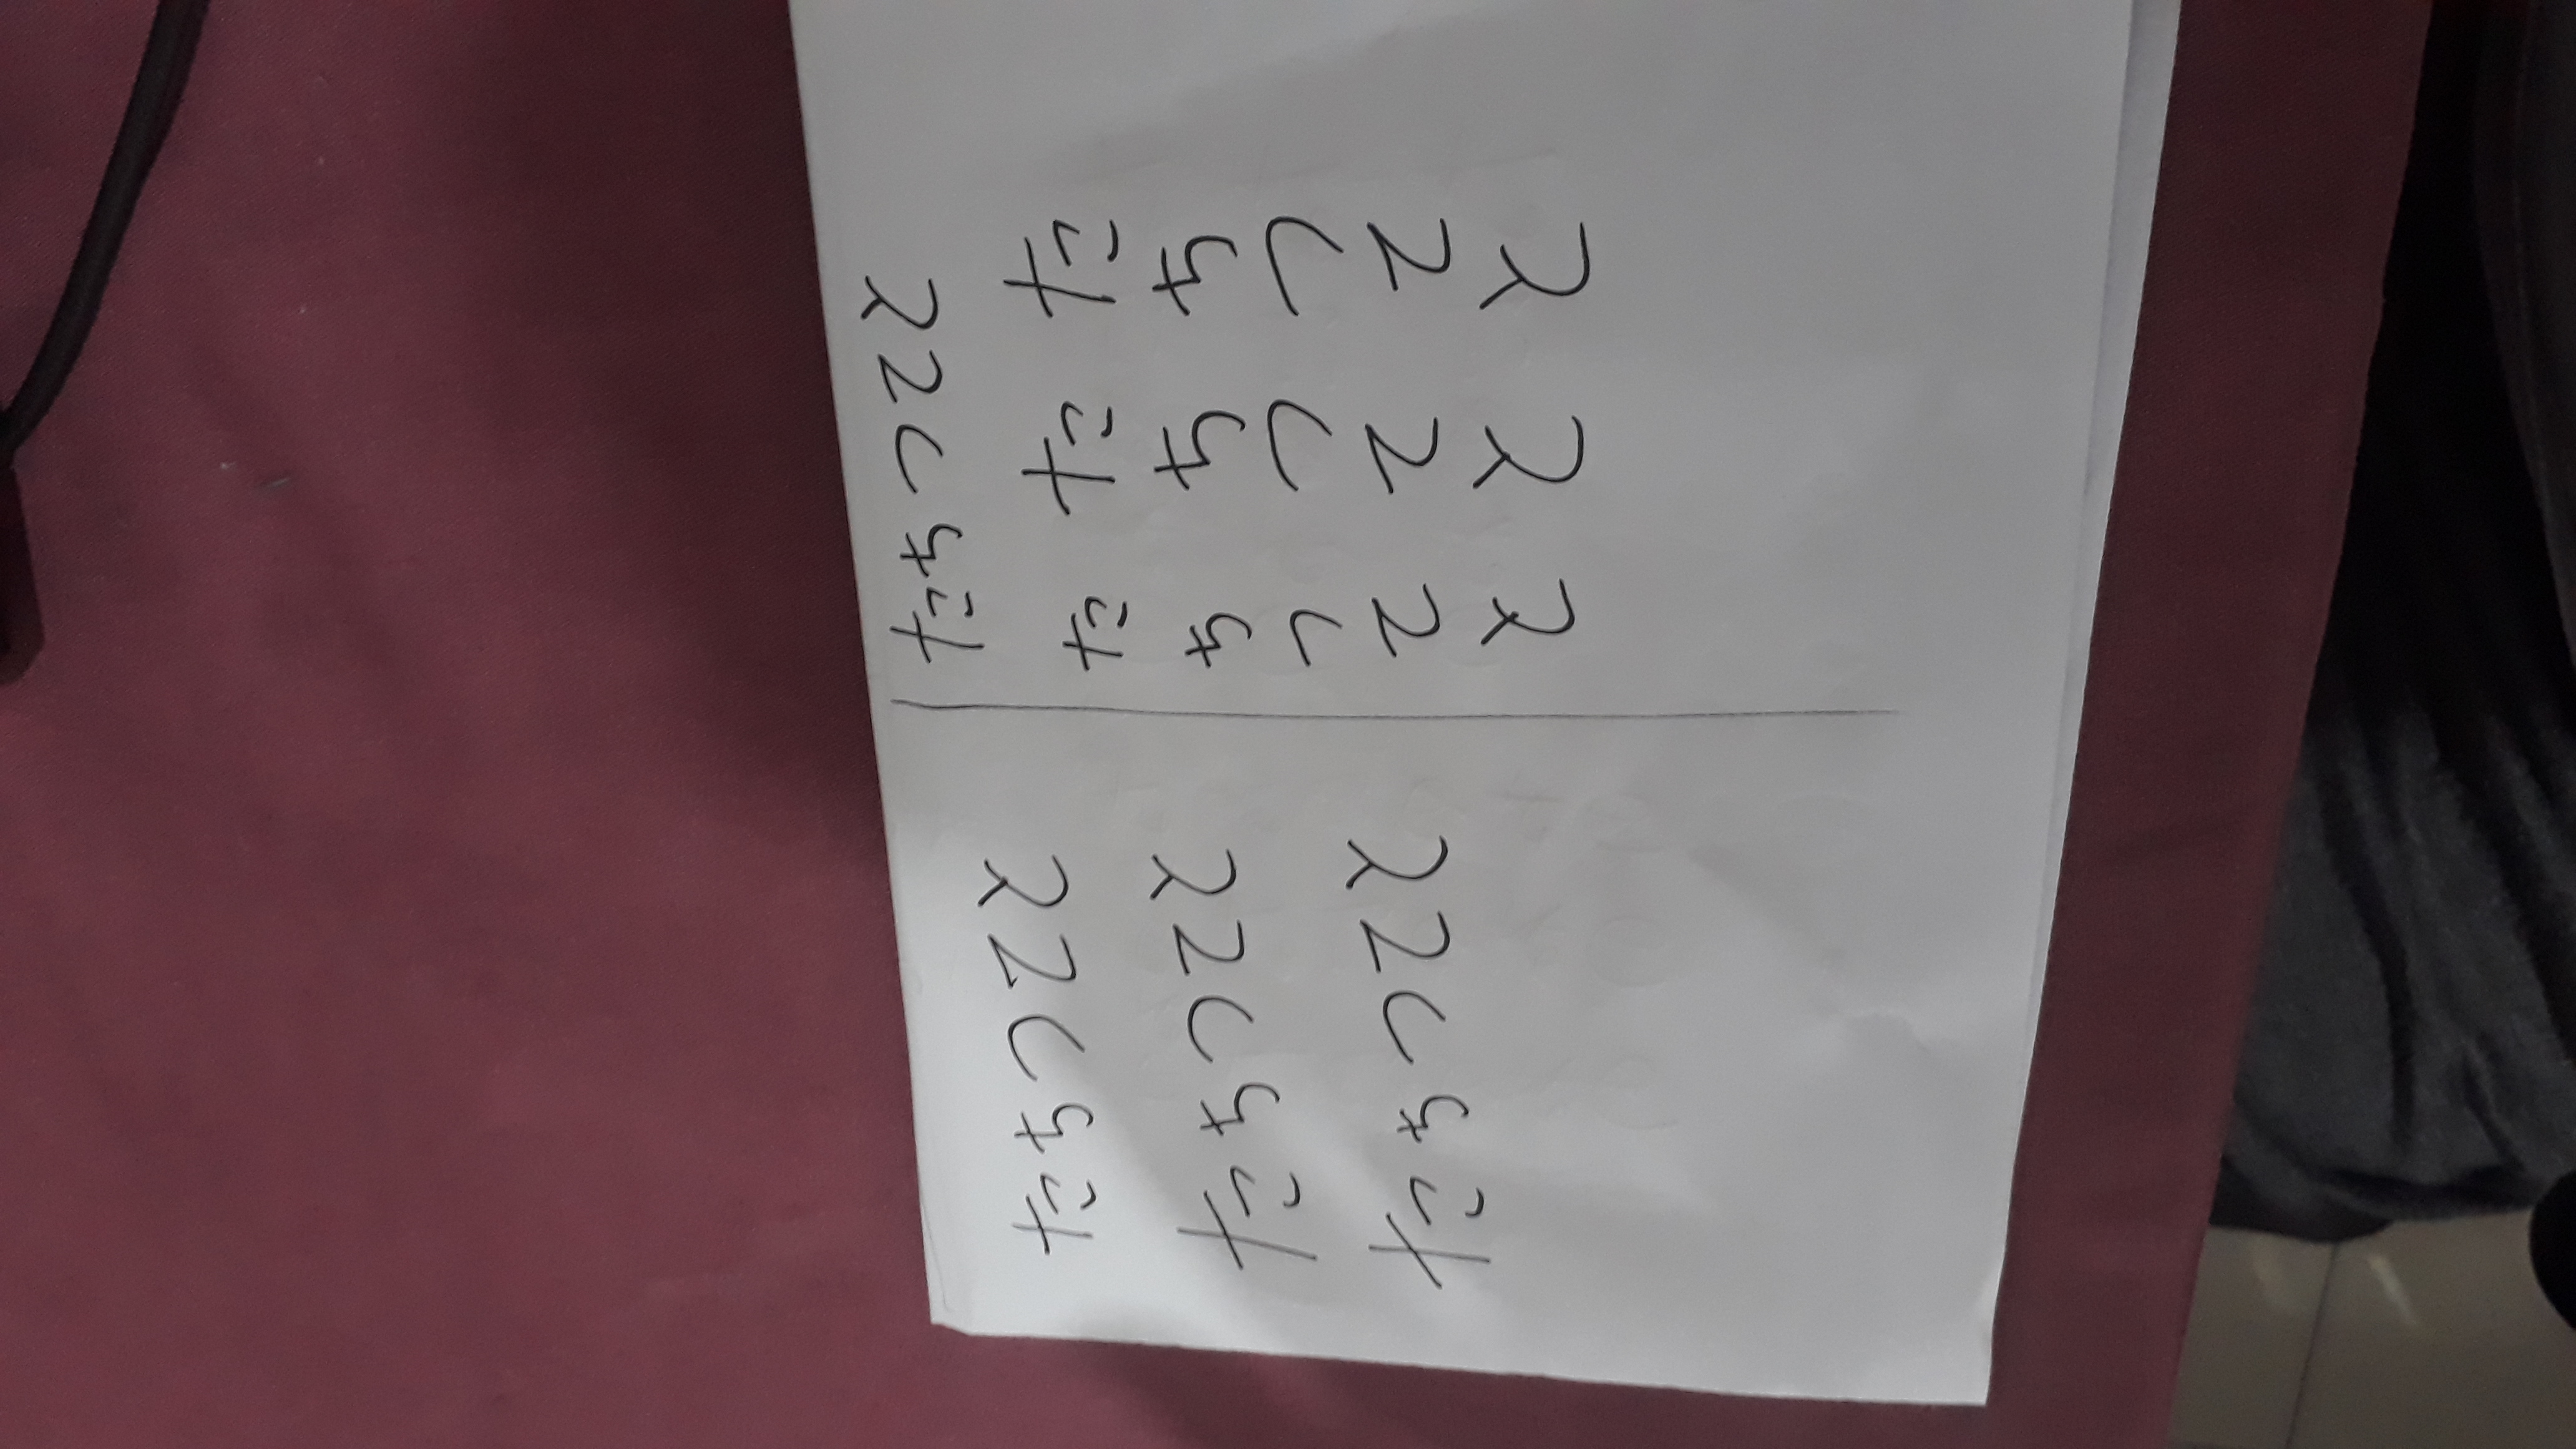 たちつてと
たちつてと
たちつてと
たちつてと
た た た
ち ち ち
つ つ つ
て て て
と と と